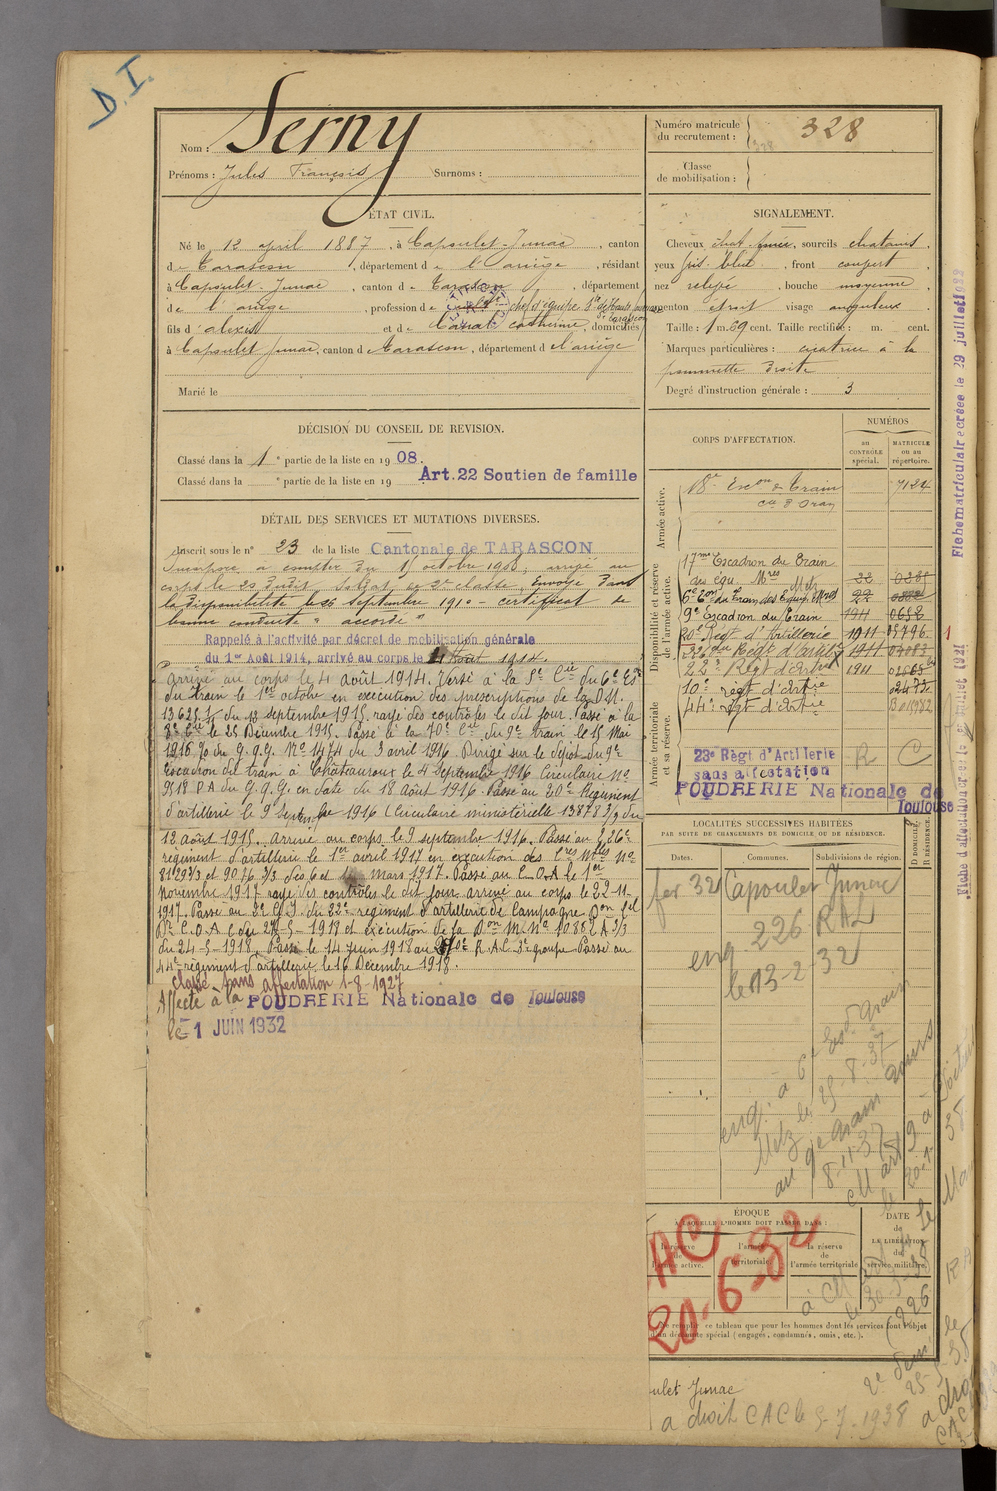 D.I.
Nom : Serny
Prénoms : Jules François Surnoms :
ÉTAT CIVIL.
Né le 12 april 1887, à Capoulet-Junac, canton
de Tarascon, département de l'ariège, résidant
à Capoulet-Junac, canton de Tarascon, département
de l'ariège, profession de chef d'équipe
fils d'alexis et de catherine, domiciliés
à Capoulet Junac, canton d Tarascon, département d l'ariège
Marié le
DÉCISION DU CONSEIL DE REVISION.
Classé dans la 1e partie de la liste en 1908.
Classé dans la e partie de la liste en 19
Art.22 Soutien de famille
DÉTAIL DES SERVICES ET MUTATIONS DIVERSES.
Inscrit sous le n° 23 de la liste Cantonale de TARASCON
Incorporé à compter du octobre 1908, arrivé au
corps le dit, soldat de 2e classe. Envoyé dans
la disponibilité le 26 septembre 1910 - certificat de
bonne conduite "accordé"
Rappelé à l'activité par décret de mobilisation générale
du 1er Août 1914, arrivé au corps le 4 Août 1914.
Arrivé au corps le 4 août 1914. Passé à la 5e Cie du 6e Esc
du train le 1er octobre en execution des prescriptions de la D.M.
13625 1/5 du 18 septembre 1915, rayé des contrôles le dit jour. Passé à la
8e Cie le 25 Décembre 1915. Passé à la 70e Cie du 9e train le 15 Mai
1916 % du G.Q.G. No 1474 du 3 avril 1916. Dirigé sur le dépôt du 9e
Escadron du train à Châteauroux le 4 Septembre 1916 Circulaire No
9518 P.A. du G.Q.G. en date du 18 Août 1916. Passé au 20e Régiment
d'artillerie le 9 Septembre 1916 (Circulaire ministérielle 13878 3/3 du
12 août 1915. Arrivé au corps le 9 septembre 1916. Passé au 226e
régiment d'artillerie le 1er avril 1917 en execution des Cres Mlles No
8129 3/3 et 9076 3/3 des 6 et Mars 1917. Passé au C.O.A le 1er
novembre 1917 rayé des contrôles le dit jour arrivé au corps le 22-11-
1917. Passé au 22e régiment d'artillerie de Campagne
le 27-5-1918 et execution de la Don M. No 10882 A 3/3
du 24-5-1918. Passé le 14 juin 1918 au 10e R.A.C. 3e groupe Passé au
44e régiment d'artillerie le 16 Décembre 1918.
Classé sans affectation 1-8-1927
Affecté à la POUDRERIE Nationale de Toulouse
le 1 JUIN 1932
Numéro matricule du recrutement : 328
Classe de mobilisation :
SIGNALEMENT.
Cheveux chat. foncé, sourcils chatains,
yeux gris-bleu, front couvert,
nez relevé, bouche moyenne,
menton étroit visage anguleux
Taille : 1 m. 69 cent. Taille rectifiée : m. cent.
Marques particulières : cicatrice à la
pommette droite
Degré d'instruction générale : 3
CORPS D'AFFECTATION.
NUMÉROS
au CONTRÔLE spécial.
MATRICULE ou au répertoire.
Armée active.
18e Escon du Train 7124
Disponibilité et réserve de l'armée active.
17me Escadron du Train
des équ. Mres 22
6e Eon du Train des Equip. Mres Metz 22
9e Escadron du Train 1911 0652
20e Régt d'Artillerie 1911 05796
226me Régt d'artie 1911
22e Régt d'Artie 1911
10e régt d'Artie
44e rgt d'Artie
Armée territoriale et sa réserve.
23e Régt d'Artillerie R C
sans affectation
POUDRERIE Nationale de
Toulouse
LOCALITÉS SUCCESSIVES HABITÉES
PAR SUITE DE CHANGEMENTS DE DOMICILE OU DE RÉSIDENCE.
D DOMICILE. R RÉSIDENCE.
Dates. Communes. Subdivisions de région.
fer 32 Capoulet Junac
enq 226 RAL
le 13-2-32
enq. à 6e Esc. Train
Metz le 25-8-37
au 9e Train Tours
8-11-37
ÉPOQUE
À LAQUELLE L'HOMME DOIT PASSER DANS :
la réserve de l'armée active.
l'armée territoriale.
la réserve de l'armée territoriale
DATE de LA LIBÉRATION du service militaire.
AC
20-6-32
Ne remplir ce tableau que pour les hommes dont les services font l'objet
d'un décompte spécial (engagés, condamnés, omis, etc.).
oulet Junac
a droit CAC le 5-7-1938
Fiche matriculaire créée le 29 juillet 1932